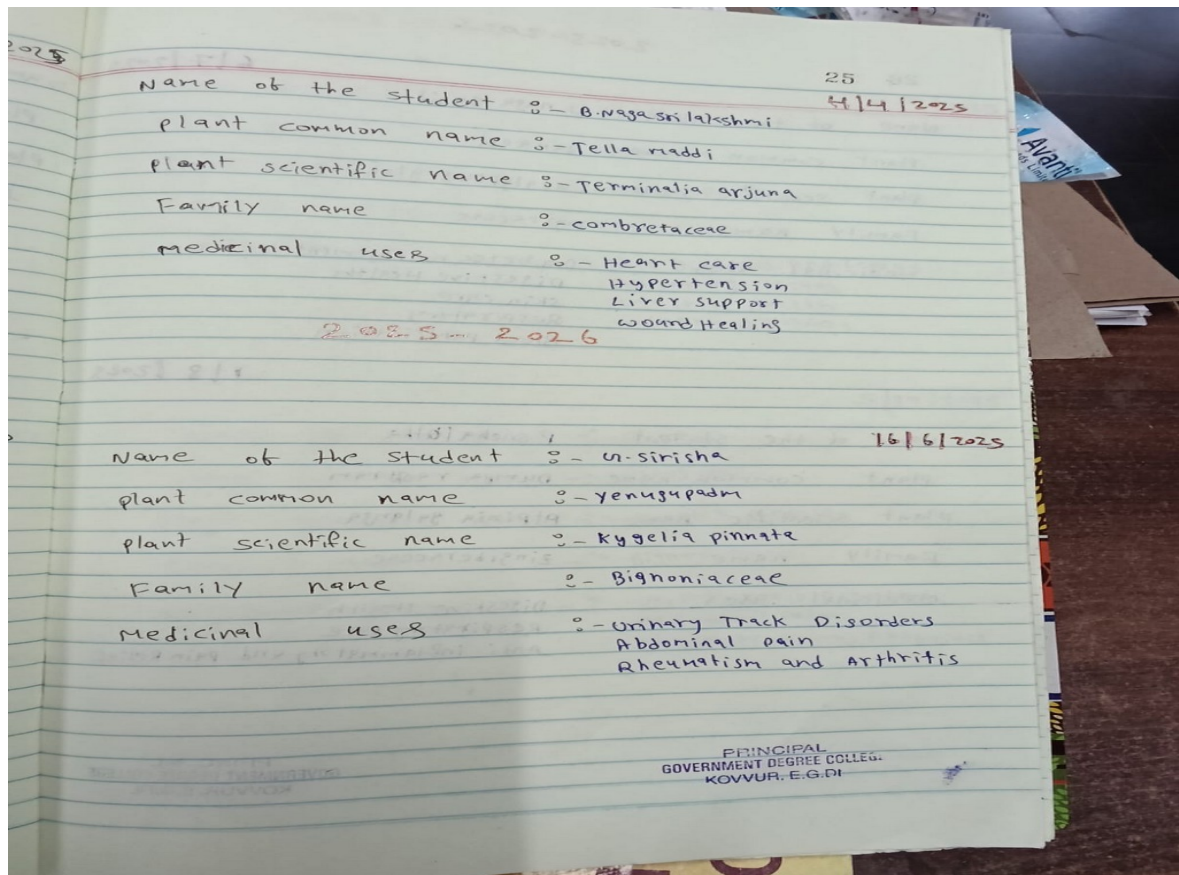 2025
25
4/4/2025
Name of the student :- B.Naga sri lakshmi
plant common name :- Tella maddi
plant scientific name :- Terminalia arjuna
Family name :- combretaceae
medicinal uses :- Heart care
Hypertension
Liver support
wound Healing
2025-2026
16/6/2025
Name of the student :- G.sirisha
plant common name :- Yenugupadm
plant scientific name :- Kygelia pinnata
Family name :- Bignoniaceae
Medicinal uses :- Urinary Track Disorders
Abdominal pain
Rheumatism and Arthritis
PRINCIPAL
GOVERNMENT DEGREE COLLEG
KOVVUR. E.G.DI
Avanti